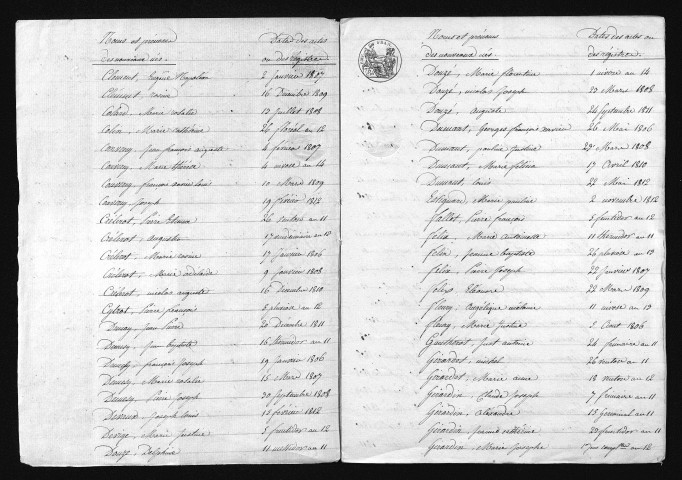 Noms et prénoms
des nouveaux nés.
Date des actes
ou des Registres
Clement, Eugène Napoléon 2 Janvier 1807
Clement, rosine 16 Decembre 1809
Colard, Marie rosalie 13 Juillet 1808
Colin, Marie catherine 26 floreal an 12
Convroy, Jean françois auguste 4 fevrier 1807
Convroy, Marie thérèse 4 nivose an 14
Convroy, françois 10 Mars 1809
Convroy, Joseph 19 fevrier 1812
Crébrot, Pierre Etienne 26 ventose an 11
Crébrot, augustin 17 vendemiaire an 13
Crébrot, Marie rosine 17 Janvier 1806
Crébrot, Marie adelaïde 9 Janvier 1808
Crébrot, nicolas auguste 16 Decembre 1810
Cytrot, Pierre françois 5 pluviose an 12
Demay, Jean Pierre 20 Decembre 1811
Demay, Jean baptiste 16 thermidor an 11
Demay, françois Joseph 19 Janvier 1806
Demay, Marie rosalie 15 Mars 1807
Demay, Pierre Joseph 30 Septembre 1808
Joseph Louis 15 février 1812
Marie Justine 5 fructidor an 12
Douzé, Delphine 11 messidor an 11
Noms et prénoms
des nouveaux nés
Dates des actes ou
des régistres.
Douzé, Marie florentine 1 nivose an 14
Douzé, nicolas Joseph 20 Mars 1808
Douzé, auguste 24 Septembre 1811
Dumont, Georges françois xavier 26 Mai 1806
Dumont, pauline Justine 29 Mars 1808
Dumont, Marie felicie 17 Avril 1810
Dumont, Louis 22 Mai 1812
Marie pauline 2 novembre 1812
fallot, Pierre françois 5 fructidor an 12
felix, Marie antoinette 11 thermidor an 11
felix, Jeanne baptiste 26 pluviose an 13
felix, Pierre Joseph 22 Janvier 1807
felix, Eléonore 22 Mars 1809
fleury, Angélique mélanie 11 nivose an 13
fleury, Marie Justine 2 Aout 1806
Just antoine 24 frimaire an 11
Girardot, michel 26 ventose an 11
Girardot, Marie anne 18 ventose an 12
Girardin, Claude Joseph 7 frimaire an 11
Girardin, alexandre 15 Germinal an 11
Girardin, Jeanne catherine 20 fructidor an 11
Girardin, Marie Josephe 1er jour compl.re an 12